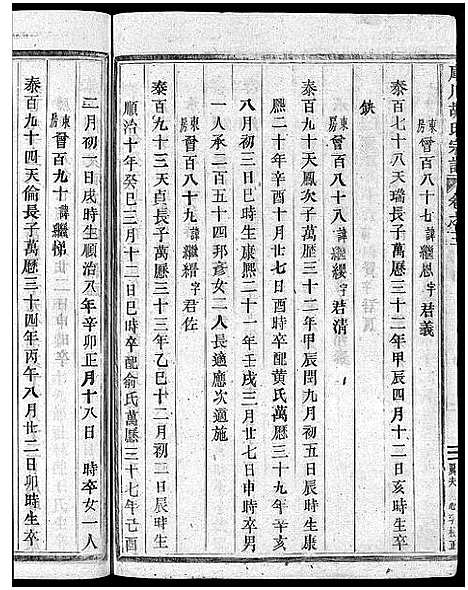 胡氏宗譜
東房 晉百八十七 諱繼恩 字君義
泰百七十八天瑞長子萬曆三十二年甲辰四月十二日亥時生卒
缺
東房 晉百八十八 諱繼纓 字君清
泰百九十二天鳳次子萬曆三十二年甲辰閏九月初五日辰時生康
熙二十年辛酉十月廿七日酉時卒配黄氏萬曆三十九年辛亥
八月初三日巳時生康熙二十一年壬戌三月廿七日申時卒男
一人承二百五十四邦彥女二人長適應次適施
東房 晉百八十九 諱繼縉 字君佐
泰百九十三天貞長子萬曆三十三年乙巳十二月初三日辰時生
順治十年癸巳三月十二日巳時卒配俞氏萬曆三十七年己酉
二月初八日戌時生順治八年辛卯正月十八日 時卒女一人
東房 晉百九十 諱繼悌
泰百九十四天倫長子萬曆三十四年丙午八月廿二日卯時生卒